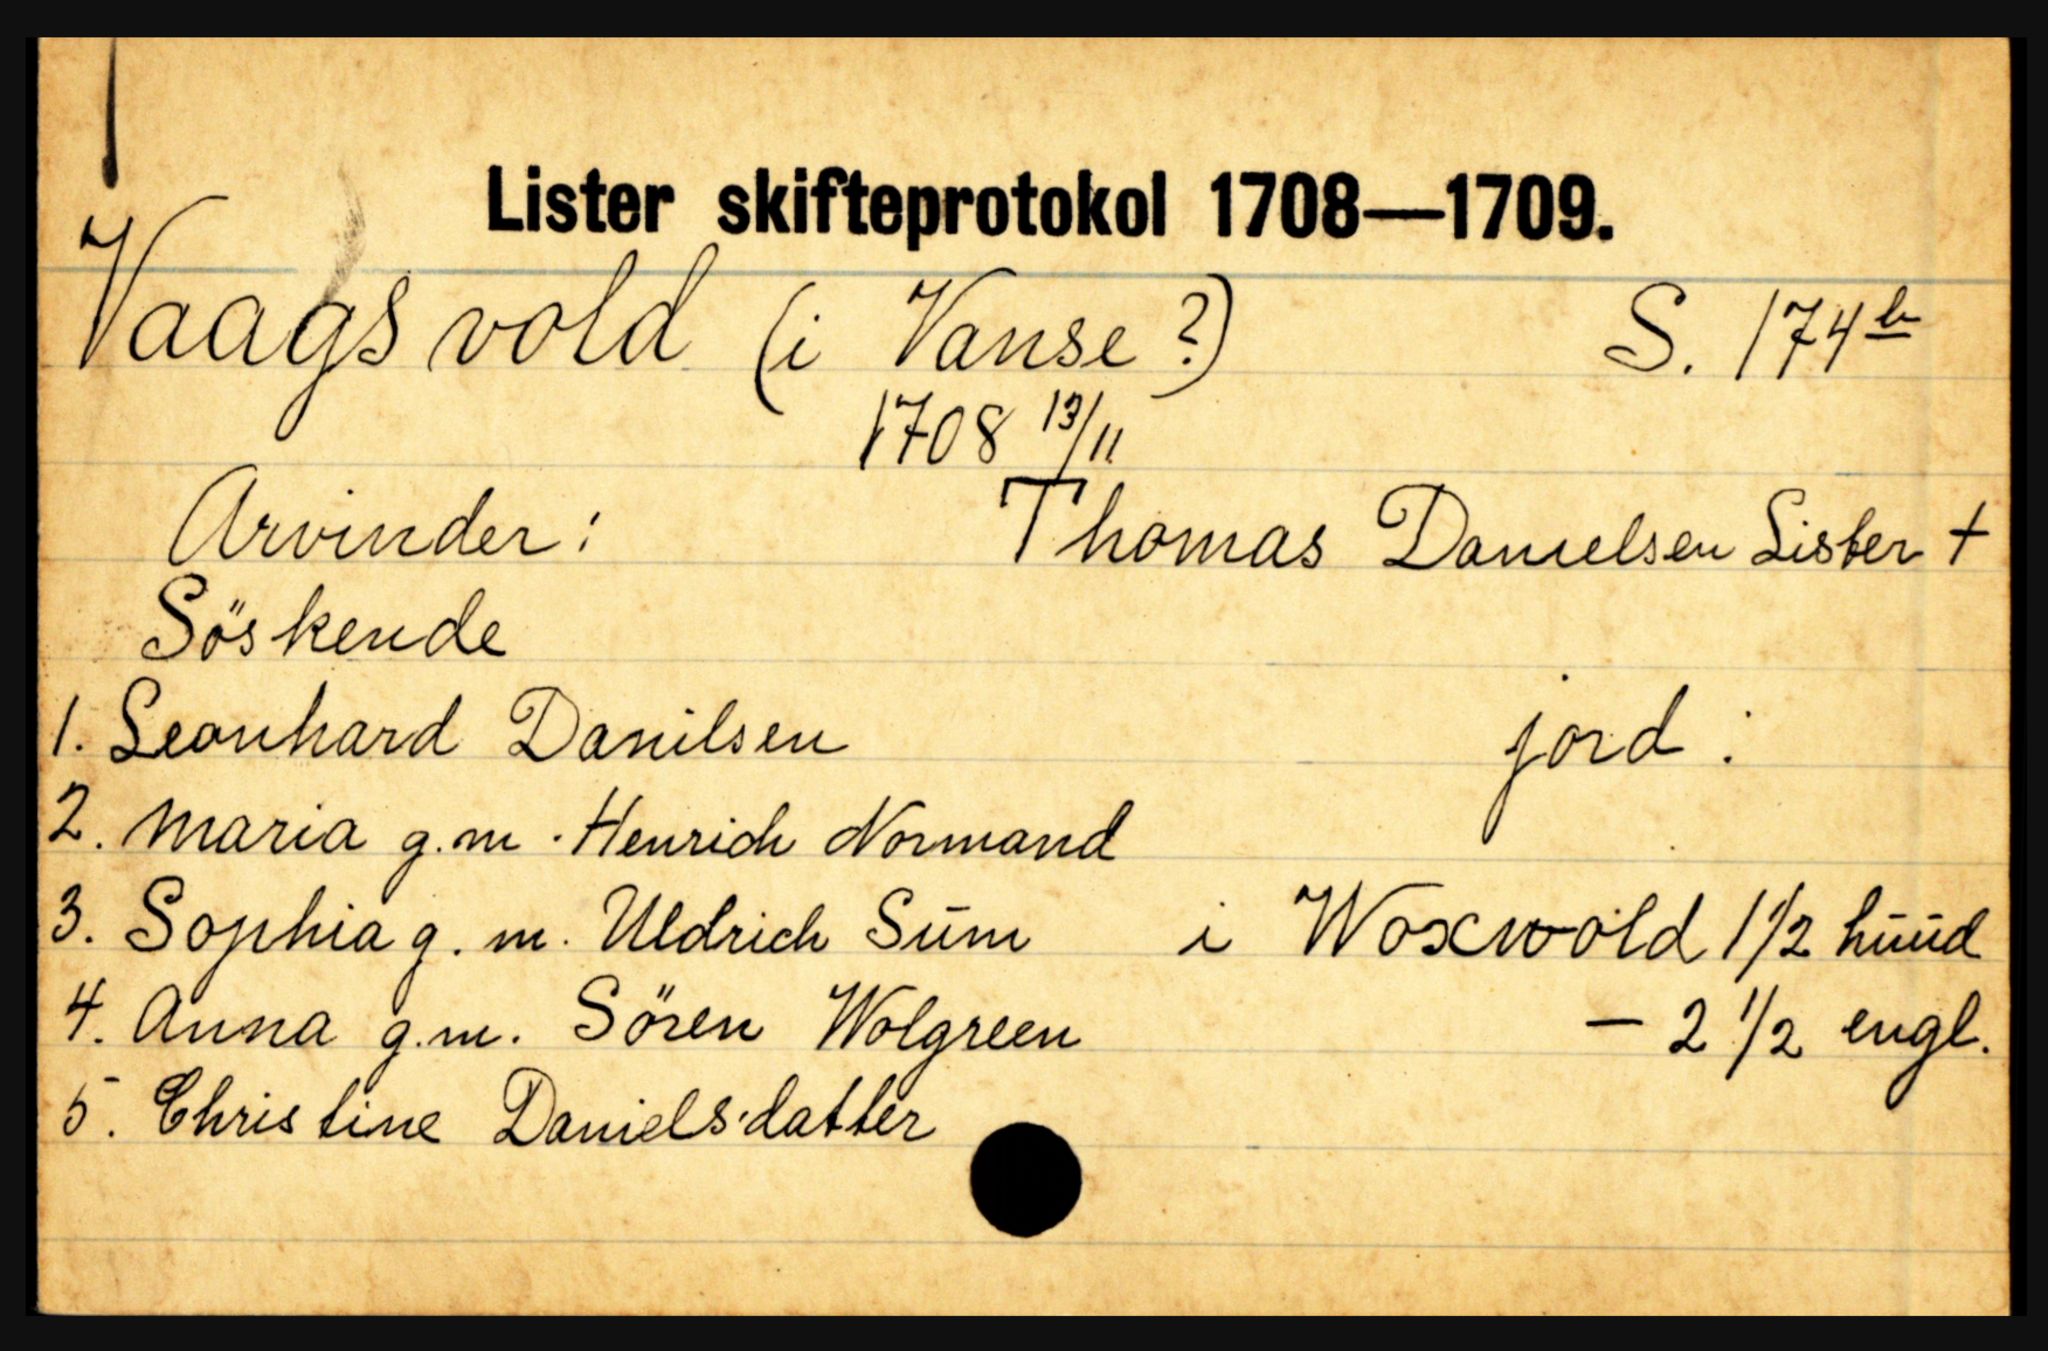 Lister skifteprotokol 1708—1709.
Vaagsvold (i Vanse?) S. 174b
1708 13/11
Arvinder: Thomas Danielsen Lister +
Söskende
1. Leonhard Danilsen jord:
2. Maria g.m. Henrich Normand
3. Sophia g.m. Uldrich Sūm i Woxwold 1 1/2 hūūd
4. Anna g.m. Sören Wolgreen – 2 1/2 engl.
5. Christine Danielsdatter